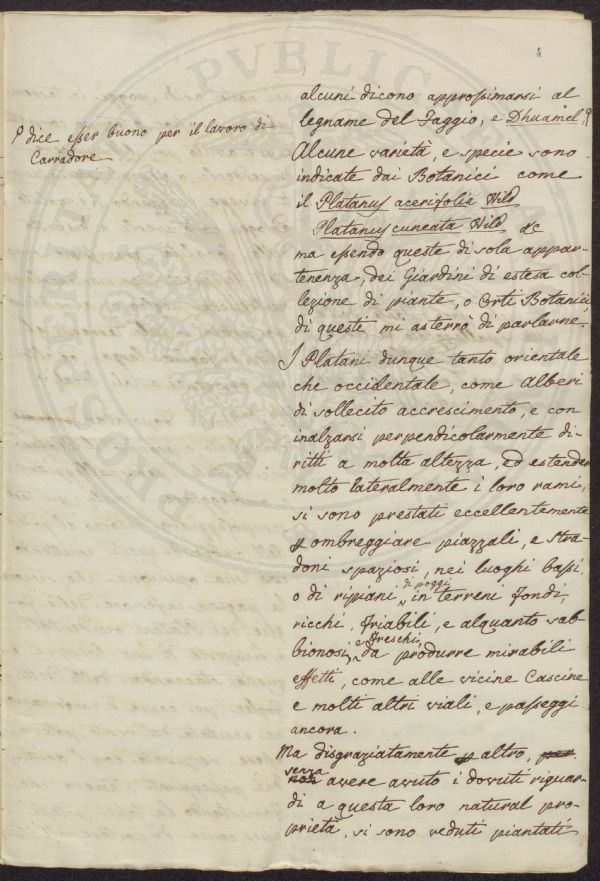 4
alcuni dicono approssimarsi al
legname del Faggio, e Dhuamel
dice esser buono per il lavoro di
Carradore
Alcune varietà, e specie sono
indicate dai Botanici come
il Platanus acerifolia Wild
Platanus cuneata Wild &c
ma essendo queste di sola appar-
tenenza, dei Giardini di estesa col-
lezione di piante, o Orti Botanici,
di questi mi asterrò di parlarne.
I Platani dunque tanto orientale
che occidentale, come Alberi
di sollecito accrescimento, e con
inalzarsi perpendicolarmente di-
ritti a molta altezza, ed estender
molto lateralmente i loro rami,
si sono prestati eccellentemente
p ombreggiare piazzali, e stra-
doni spaziosi, nei luoghi bassi,
o di ripiani di poggi, in terreni fondi,
ricchi, friabili, e alquanto sab-
bionosi e freschi, da produrre mirabili
effetti, come alle vicine Cascine
e molti altri viali, e passeggi
ancora.
Ma disgraziatamente p altro,
senza avere avuto i dovuti riguar-
di a questa loro natural pro-
prietà, si sono veduti piantati